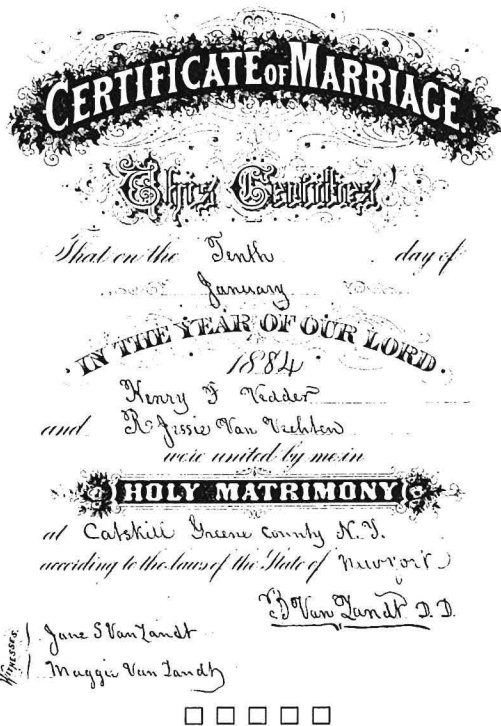 CERTIFICATE OF MARRIAGE.
This Certifies
That on the Tenth day of
January
IN THE YEAR OF OUR LORD.
1884
Henry F Vedder
and R Jessie Van Vechten
were united by me in
HOLY MATRIMONY
at Catskill Greene County N.Y.
according to the laws of the State of New York
B Van Zandt D.D.
WITNESSES.
Jane S Van Zandt
Maggie Van Zandt